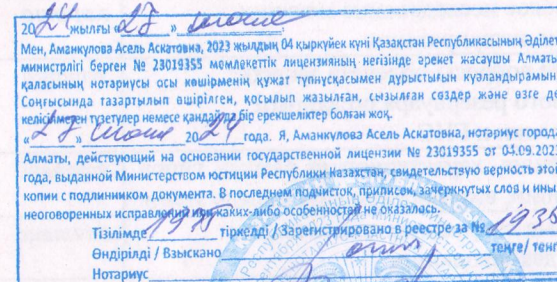 2024 жылғы «28» июня
Мен, Аманкулова Асель Аскатовна, 2023 жылдың 04 қыркүйек күні Қазақстан Республикасының Әділет
министрлігі берген № 23019355 мемлекеттік лицензияның негізінде әрекет жасаушы Алматы
қаласының нотариусы осы көшірменің құжат түпнұсқасымен дұрыстығын куәландырамын.
Соңғысында тазартылып өшірілген, қосылып жазылған, сызылған сөздер және өзге де
келісілмеген түзетулер немесе қандайда бір ерекшеліктер болған жоқ.
«28» июня 2024 года. Я, Аманкулова Асель Аскатовна, нотариус города
Алматы, действующий на основании государственной лицензии № 23019355 от 04.09.2023
года, выданной Министерством юстиции Республики Казахстан, свидетельствую верность этой
копии с подлинником документа. В последнем подчисток, приписок, зачеркнутых слов и ины
неоговоренных исправлений или каких-либо особенностей не оказалось.
Тізілімде тіркелді / Зарегистрировано в реестре за № 1935
Өндірілді / Взыскано теңге/ тенг
Нотариус